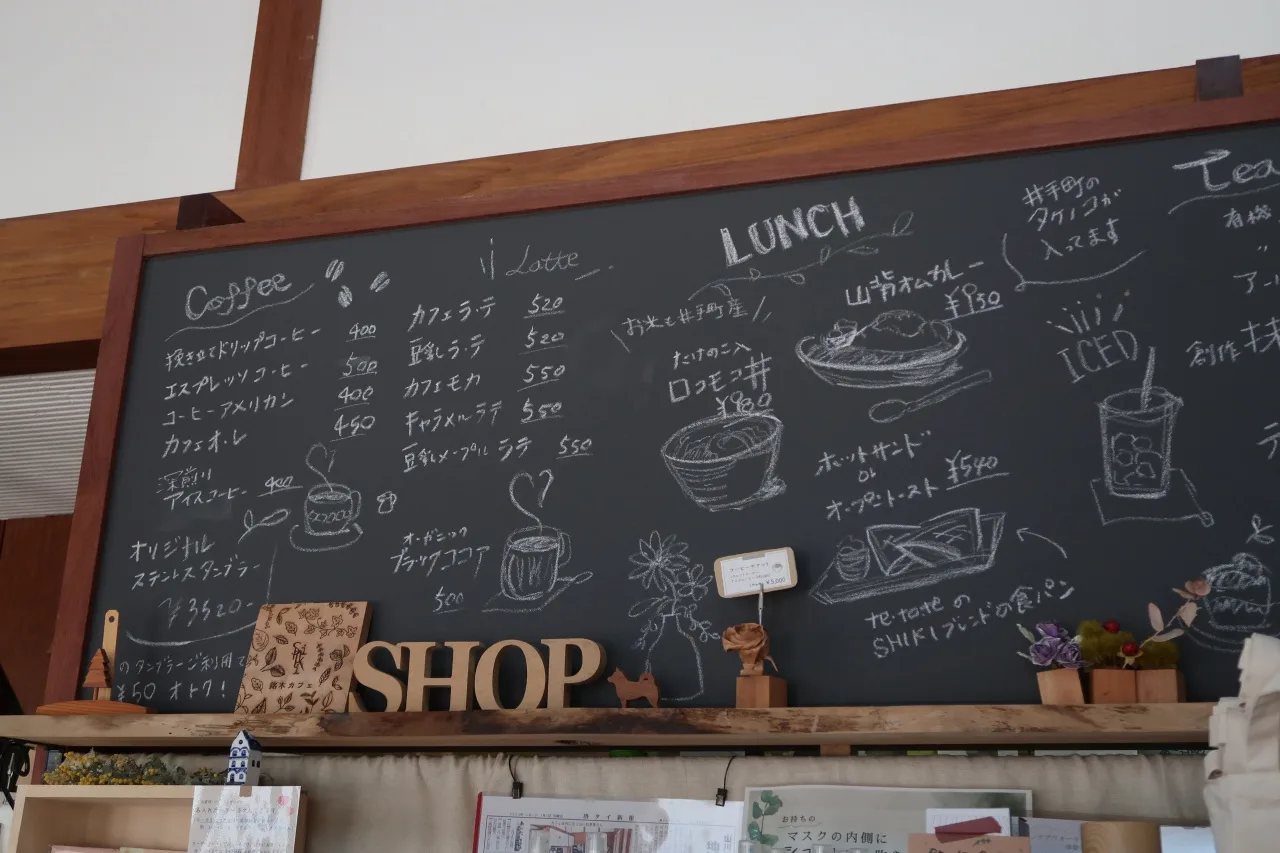 Coffee
挽き立てドリップコーヒー 400
エスプレッソコーヒー 500
コーヒーアメリカン 400
カフェオ・レ 450
深煎り
アイスコーヒー 400
オリジナル
ステンレスタンブラー
¥3520-
のタンブラーご利用で
¥50 オトク!
Latte
カフェラ・テ 520
豆乳ラ・テ 520
カフェモカ 550
キャラメルラテ 550
豆乳メープルラテ 550
オーガニック
ブラックココア
500
LUNCH
お米も井手町産
たけのこ入
ロコモコ丼
¥980
山背オムカレー
¥930
井手町の
タケノコが
入ってます
ホットサンド
or
オープントースト ¥540
te・toteの
SHIKIブレンドの食パン
ICED
Tea
有機
創作
銘木カフェ
SHOP
¥5,000
お持ちの
マスクの内側に